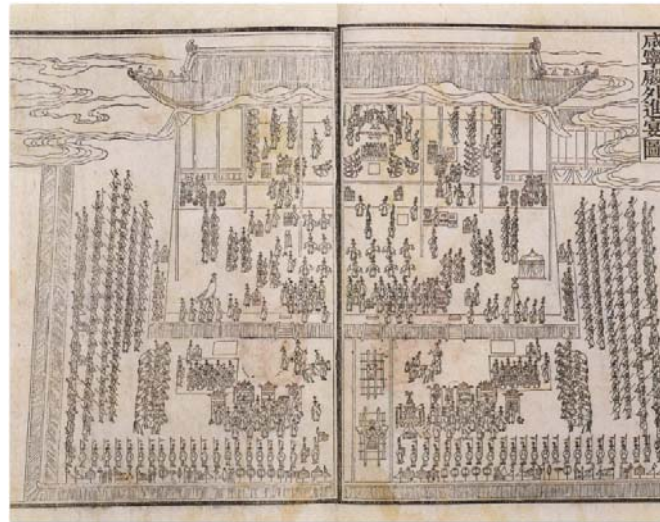 咸寧殿外進宴圖